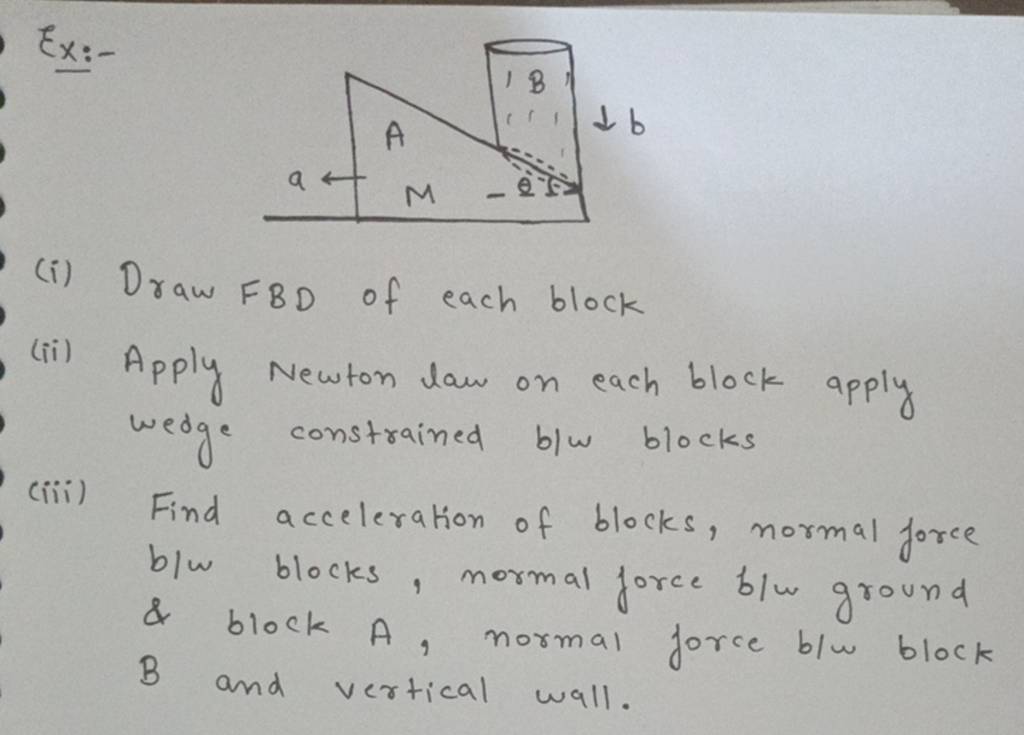 Ex:-
B
↓ b
A
a ←
M
θ
(i) Draw FBD of each block
(ii) Apply Newton law on each block apply
wedge constrained b/w blocks
(iii) Find acceleration of blocks, normal force
b/w blocks, normal force b/w ground
& block A, normal force b/w block
B and vertical wall.